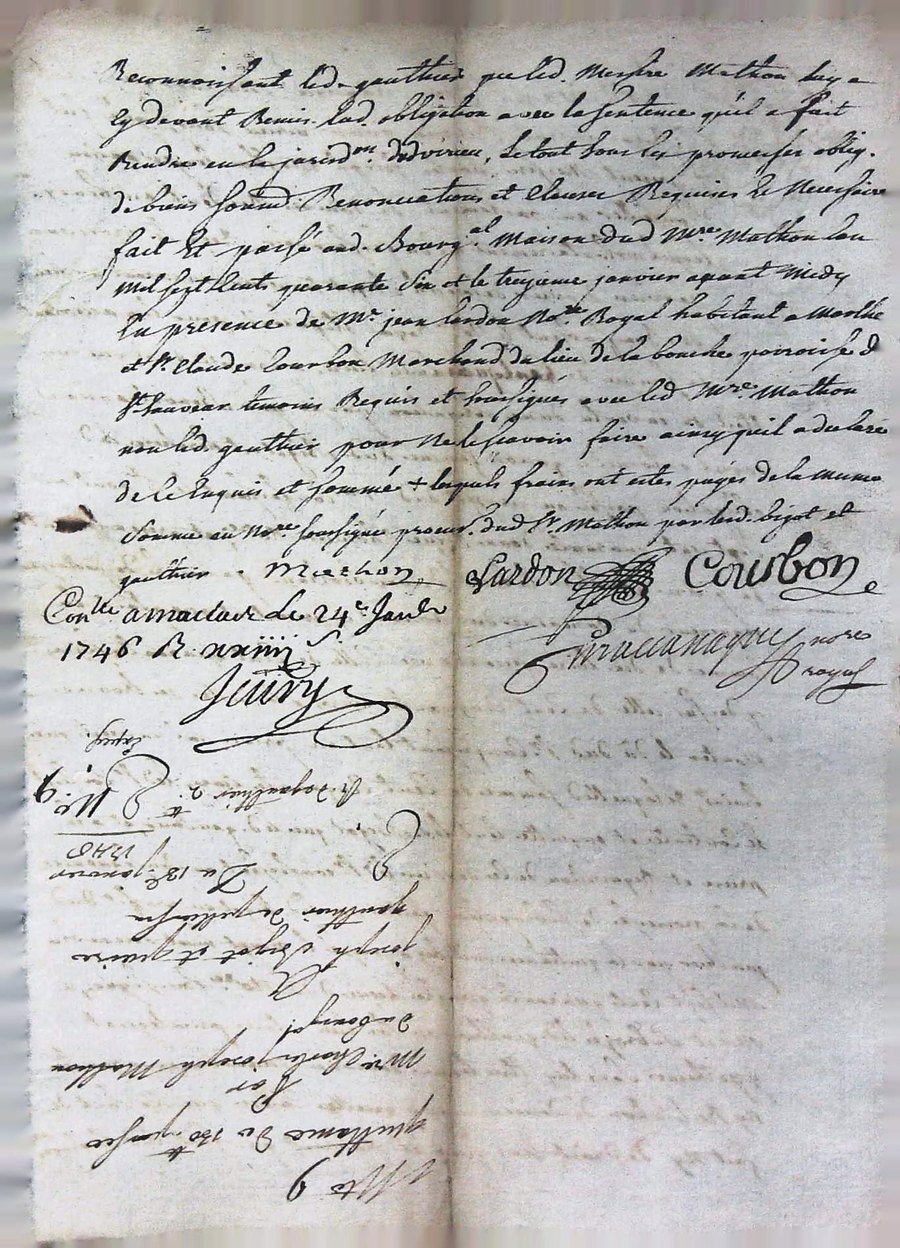 Reconnoissant led. gauthier que led. Messire Mathon luy a
Cy devant Remis lad. obligation avec la Sentence qu'il a fait
Rendre en la jurisdon. dudvirieu, le tout sous les promesses oblig.
de biens soumd Renonciations et Clauses Requises et Necessaire
fait Et passé aud. Bourgal Maison dud Mre Mathon Lan
Mil sept Cents quarante Six et le treizieme janvier avant Midy
En presence de Mr jean Lardon Nore Royal habitant a
et Sr. Claude Courbon Marchand du lieu de la paroisse d
St Sauveur temoins Requis et soussignés avec led Mre Mathon
non led. gauthier pour Ne le scavoir faire ainsy qu'il a declare
de ce Enquis et sommé + lesquels frais ont estes payés de la meme
Somme au Nore soussigné procur. dud Sr. Mathon par lesd. bijot et
gauthier. Mathon Lardon Courbon
Conlle a le 24e Janv
1746 R. nore
royal
Expéd.
No. 9
1746
Du 13e janvier
gauthier de
joseph bijot et pierre
A
du bourgal
Mre. Charles joseph Mathon
Par
quittance de 130 tt passée
9